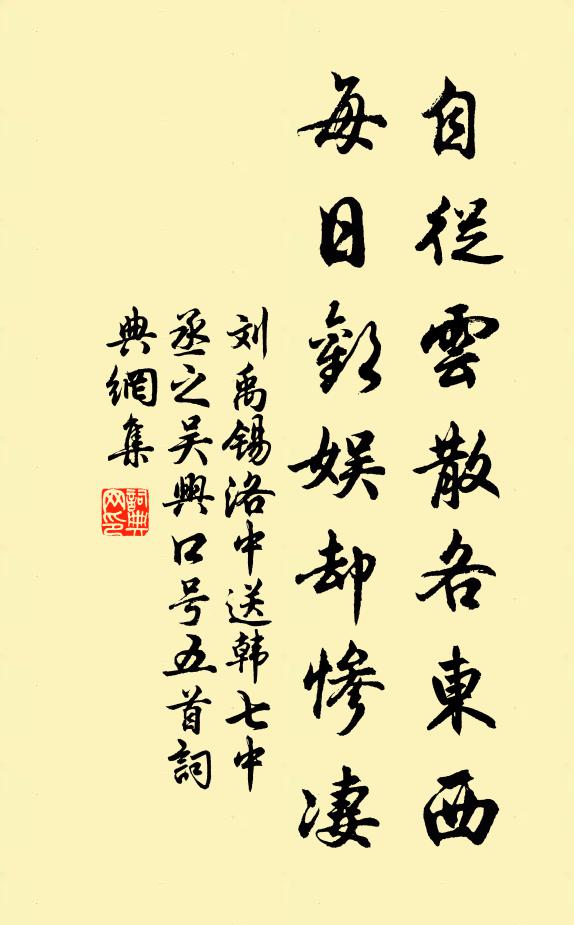 自從雲散各東西
每日歡娱却慘凄
刘禹锡洛中送韩七中
丞之吴興口号五首詞
典網集
詞典
网印